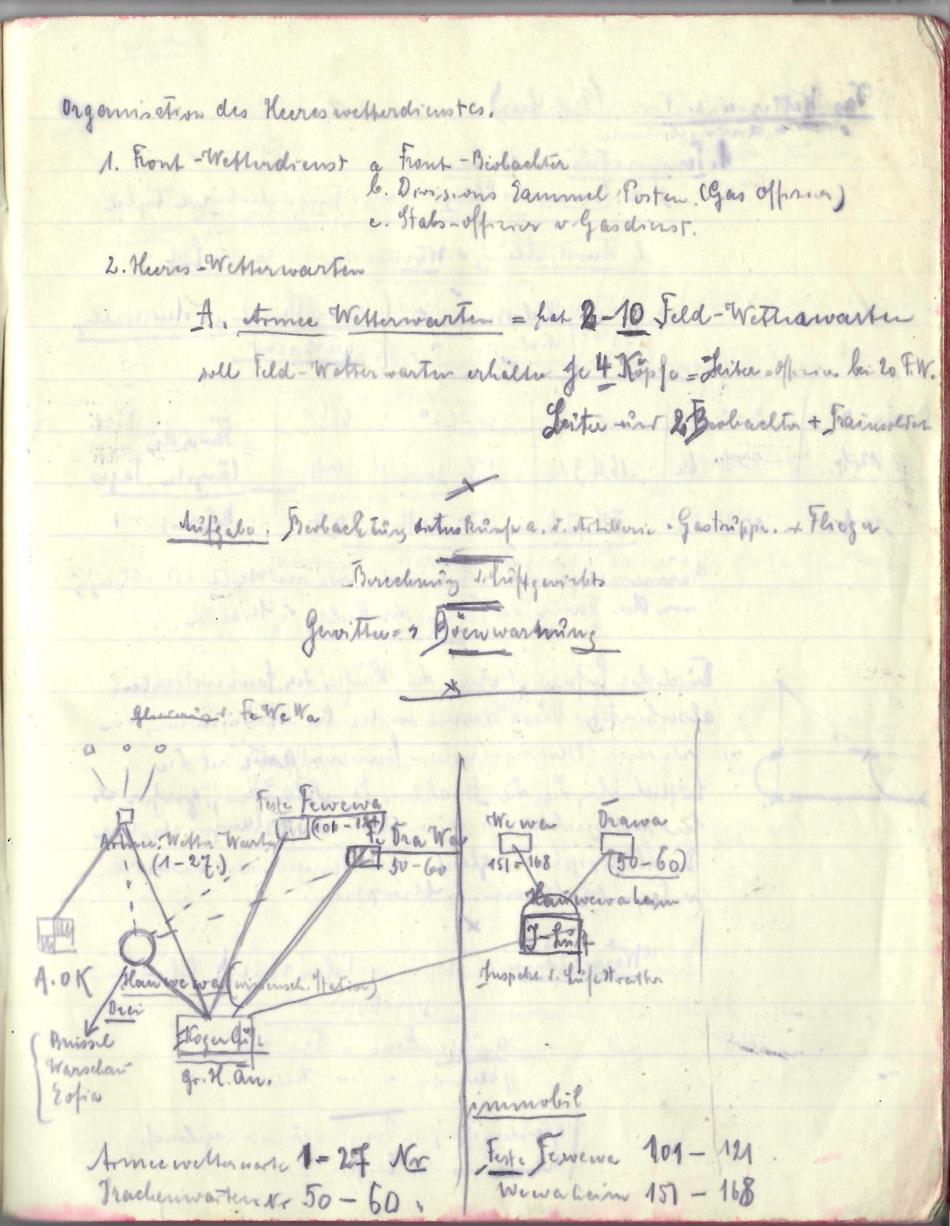 Organisation des Heereswetterdienstes.
1. Front-Wetterdienst a Front-Beobachter
b. Divisions Sammel Posten. (Gas Offizier)
c. Stabs-offizier v Gasdienst.
2. Heeres-Wetterwarten
A. Armee Wetterwarten = hat 2-10 Feld-Wetterwarten
soll Feld-Wetterwarten erhalten je 4 Köpfe = Leiter-offizier bei 20 F.W.
Leiter und 2 Beobachter + Trainsoldat
Aufgabe: Beobachtung a. d. Artillerie - Gastruppe. Flieger
Berechnung d. Luftgewichts
Gewitter = Böenwarnung
FeWeWa
Feste Fewewa
(101-121)
Armee-Wetter Warte
(1-27.)
Fe Dra Wa
50-60
Wewa
151-168
Drawa
(50-60)
Hauwewaheim
J-Luft
Inspekt. d. Luftstreitkr
A.OK
Hauwewa (wissensch. Station)
Drei
Brüssel
Warschau
Sofia
Kogenluft
gr. H. Qu.
immobil
Armeewetterwarte 1=27 Nr
Drachenwarten Nr 50-60.
Feste Fewewa 101-121
Wewaheim 151-168